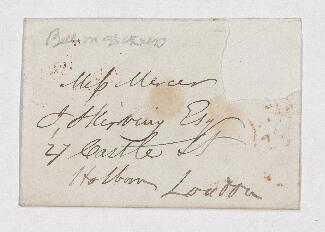 Miss Mercer
J. Skirving Esq
27 Castle St
Holborn London